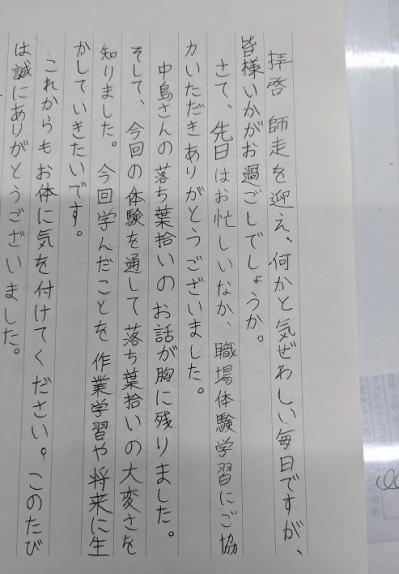 拝啓 師走を迎え、何かと気ぜわしい毎日ですが、
皆様いかがお過ごしでしょうか。
さて、先日はお忙しいなか、職場体験学習にご協
力いただきありがとうございました。
中島さんの落ち葉拾いのお話が胸に残りました。
そして、今回の体験を通して落ち葉拾いの大変さを
知りました。今回学んだことを作業学習や将来に生
かしていきたいです。
これからもお体に気を付けてください。このたび
は誠にありがとうございました。